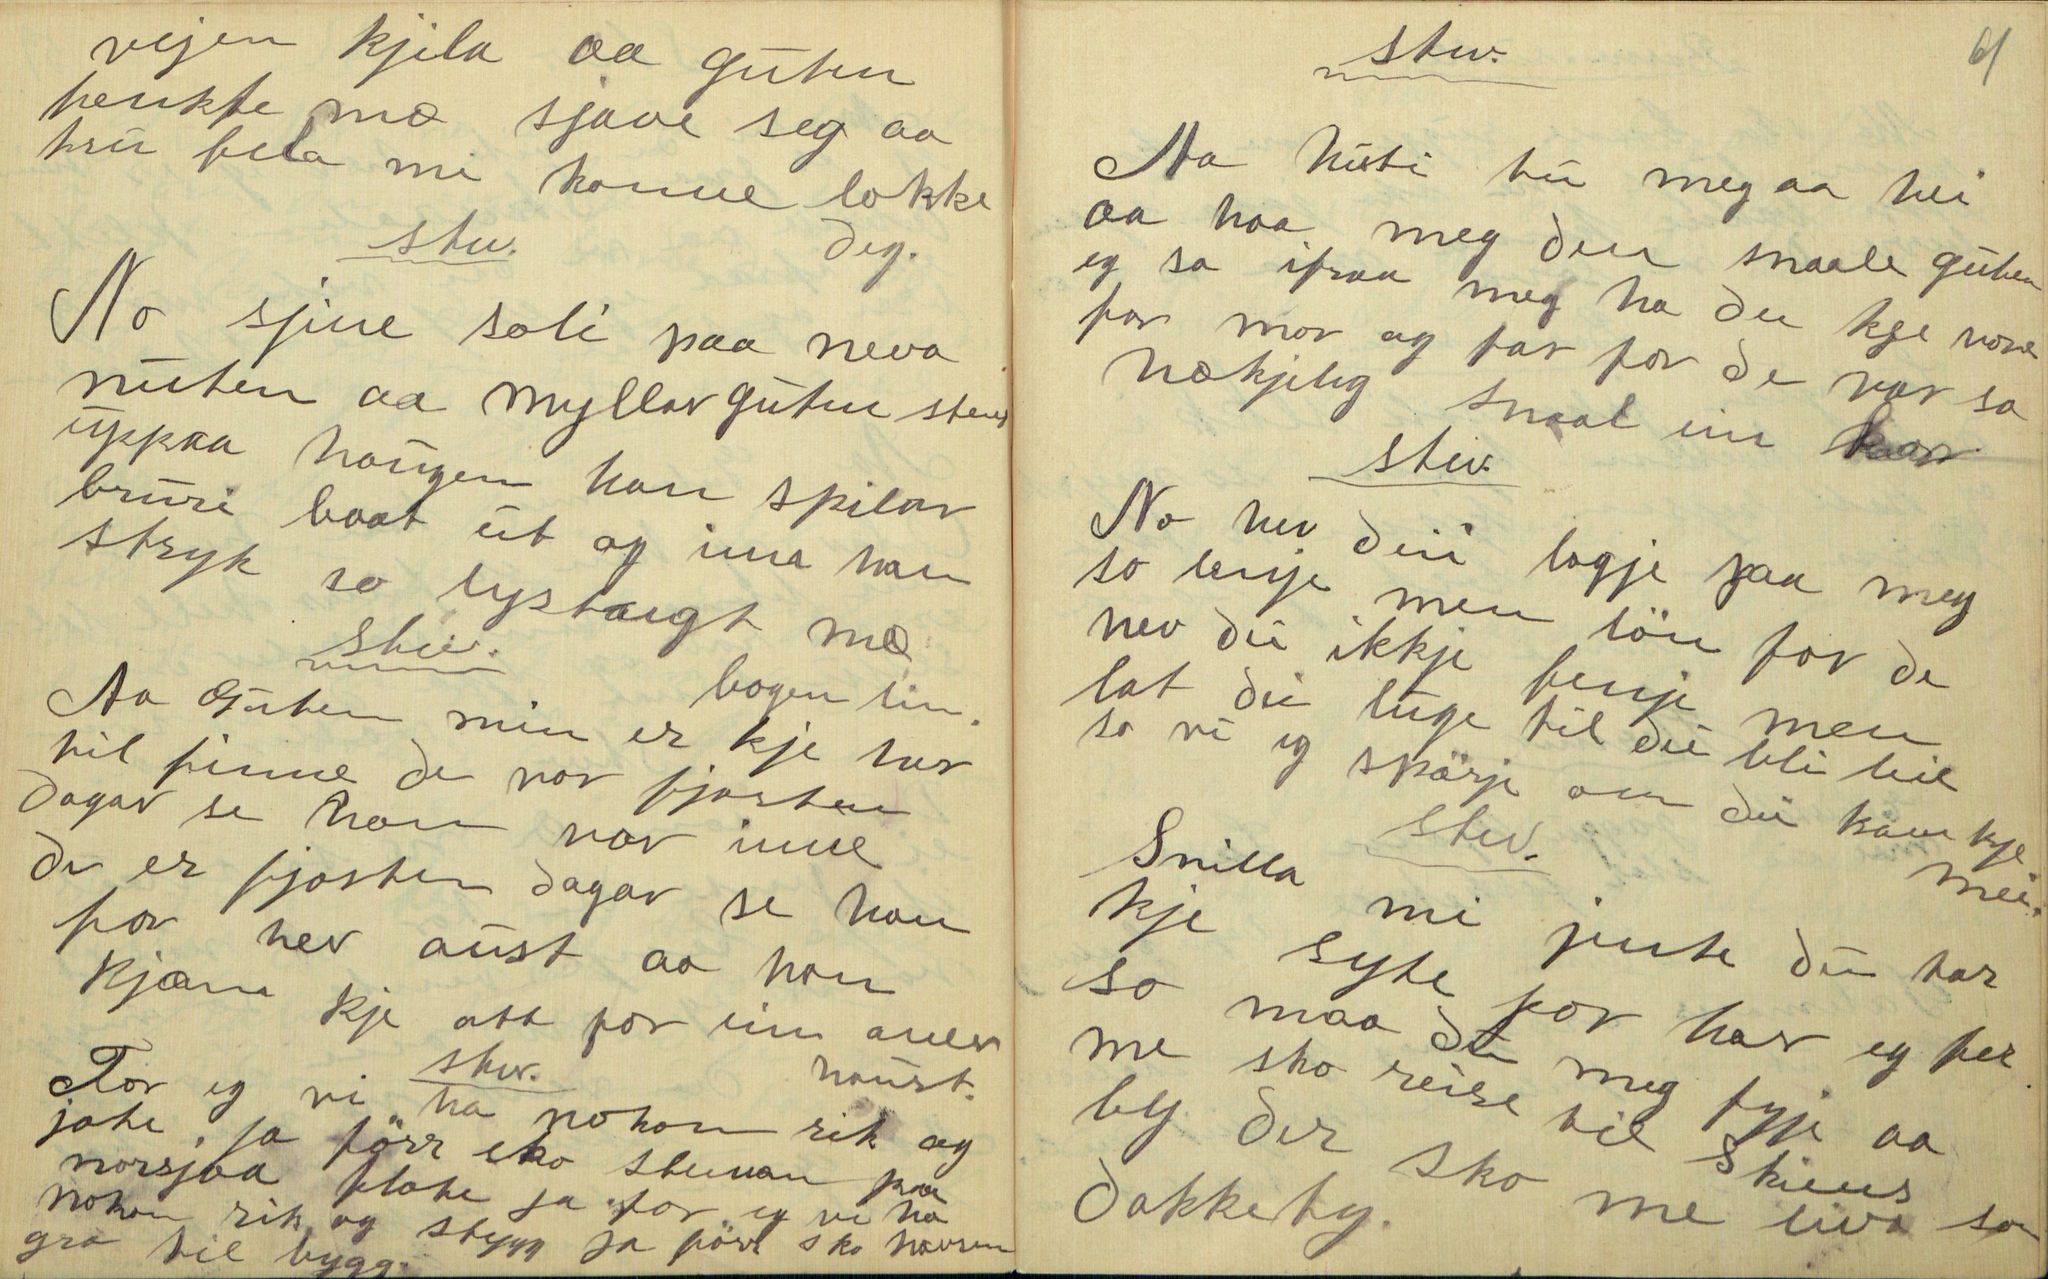 vejen kjila aa guten
henkte mæ sjave seg aa
hru fela mi konne lokke
deg.
stev.
No sjine soli paa neva
nuten aa myllarguten stend
uppaa haugen han spilar
bruri baat ut og inna han
stryk so lystaugt mæ
bogen sin.
stev.
Aa Guten min er kje her
til finne de var fjorten
dagar se han var inne
de er fjorten dagar se han
for her aust aa han
kjæm kje att for ein aaen
haust.
stev.
For eg vi ha nokon rik og
jate, ja förr sko steinan paa
norsjaa flote ja for eg vi ha
nokon rik og stygg ja förr sko havren
gro til bygg.
61
stev.
Aa huti tu meg aa hei
aa haa meg den snaale guten
eg sa ifraa meg ha de kje vore
for mor og far for de var so
hækjelig snaal ein kar
stev.
No hev du logje paa meg
so lenje men lön for de
hev du ikkje fenje men
lat du luge til du bli leie
so vi eg spörje om du kom kje
mei.
stev.
Snilla mi jente du tar
kje syte for har eg fer
so maa du meg fyje aa
me sko reise til Skiens
by der sko me leva so
dakkerty.